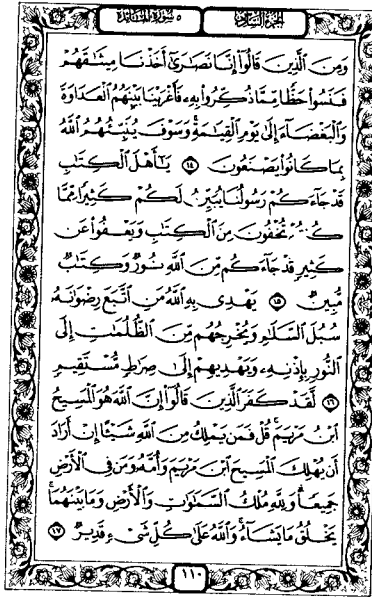 الجزء السادس ٥ سورة المائدة
وَمِنَ ٱلَّذِينَ قَالُوٓا۟ إِنَّا نَصَـٰرَىٰٓ أَخَذْنَا مِيثَـٰقَهُمْ
فَنَسُوا۟ حَظًّا مِّمَّا ذُكِّرُوا۟ بِهِۦ فَأَغْرَيْنَا بَيْنَهُمُ ٱلْعَدَاوَةَ
وَٱلْبَغْضَآءَ إِلَىٰ يَوْمِ ٱلْقِيَـٰمَةِ ۚ وَسَوْفَ يُنَبِّئُهُمُ ٱللَّهُ
بِمَا كَانُوا۟ يَصْنَعُونَ ١٤ يَـٰٓأَهْلَ ٱلْكِتَـٰبِ
قَدْ جَآءَكُمْ رَسُولُنَا يُبَيِّنُ لَكُمْ كَثِيرًا مِّمَّا
كُنتُمْ تُخْفُونَ مِنَ ٱلْكِتَـٰبِ وَيَعْفُوا۟ عَن
كَثِيرٍ ۚ قَدْ جَآءَكُم مِّنَ ٱللَّهِ نُورٌ وَكِتَـٰبٌ
مُّبِينٌ ١٥ يَهْدِى بِهِ ٱللَّهُ مَنِ ٱتَّبَعَ رِضْوَٰنَهُۥ
سُبُلَ ٱلسَّلَـٰمِ وَيُخْرِجُهُم مِّنَ ٱلظُّلُمَـٰتِ إِلَى
ٱلنُّورِ بِإِذْنِهِۦ وَيَهْدِيهِمْ إِلَىٰ صِرَٰطٍ مُّسْتَقِيمٍ
١٦ لَّقَدْ كَفَرَ ٱلَّذِينَ قَالُوٓا۟ إِنَّ ٱللَّهَ هُوَ ٱلْمَسِيحُ
ٱبْنُ مَرْيَمَ ۚ قُلْ فَمَن يَمْلِكُ مِنَ ٱللَّهِ شَيْـًٔا إِنْ أَرَادَ
أَن يُهْلِكَ ٱلْمَسِيحَ ٱبْنَ مَرْيَمَ وَأُمَّهُۥ وَمَن فِى ٱلْأَرْضِ
جَمِيعًا ۗ وَلِلَّهِ مُلْكُ ٱلسَّمَـٰوَٰتِ وَٱلْأَرْضِ وَمَا بَيْنَهُمَا ۚ
يَخْلُقُ مَا يَشَآءُ ۚ وَٱللَّهُ عَلَىٰ كُلِّ شَىْءٍ قَدِيرٌ ١٧
١١٠